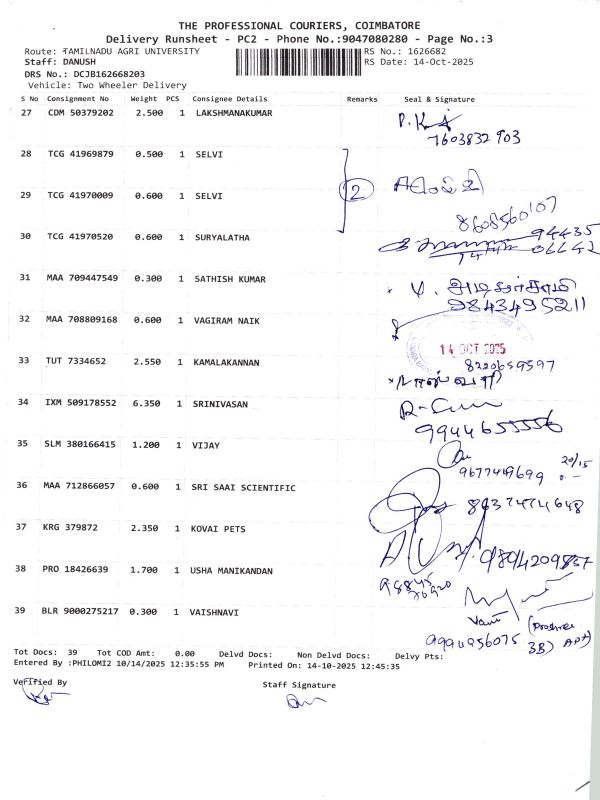 THE PROFESSIONAL COURIERS, COIMBATORE
Delivery Runsheet - PC2 - Phone No.:9047080280 - Page No.:3
Route: TAMILNADU AGRI UNIVERSITY RS No.: 1626682
Staff: DANUSH RS Date: 14-Oct-2025
DRS No.: DCJB162668203
Vehicle: Two Wheeler Delivery
S No Consignment No Weight PCS Consignee Details Remarks Seal & Signature
27 CDM 50379202 2.500 1 LAKSHMANAKUMAR
7603832903
28 TCG 41969879 0.500 1 SELVI
2
29 TCG 41970009 0.600 1 SELVI
8608560107
30 TCG 41970520 0.600 1 SURYALATHA
94435
06642
31 MAA 709447549 0.300 1 SATHISH KUMAR
9843495211
32 MAA 708809168 0.600 1 VAGIRAM NAIK
14 OCT 2025
33 TUT 7334652 2.550 1 KAMALAKANNAN
8220659597
34 IXM 509178552 6.350 1 SRINIVASAN
35 SLM 380166415 1.200 1 VIJAY
20/15
36 MAA 712866057 0.600 1 SRI SAAI SCIENTIFIC
37 KRG 379872 2.350 1 KOVAI PETS
9894209857
38 PRO 18426639 1.700 1 USHA MANIKANDAN
39 BLR 9000275217 0.300 1 VAISHNAVI
3B) APt)
Tot Docs: 39 Tot COD Amt: 0.00 Delvd Docs: Non Delvd Docs: Delvy Pts:
Entered By :PHILOMI2 10/14/2025 12:35:55 PM Printed On: 14-10-2025 12:45:35
Verified By Staff Signature